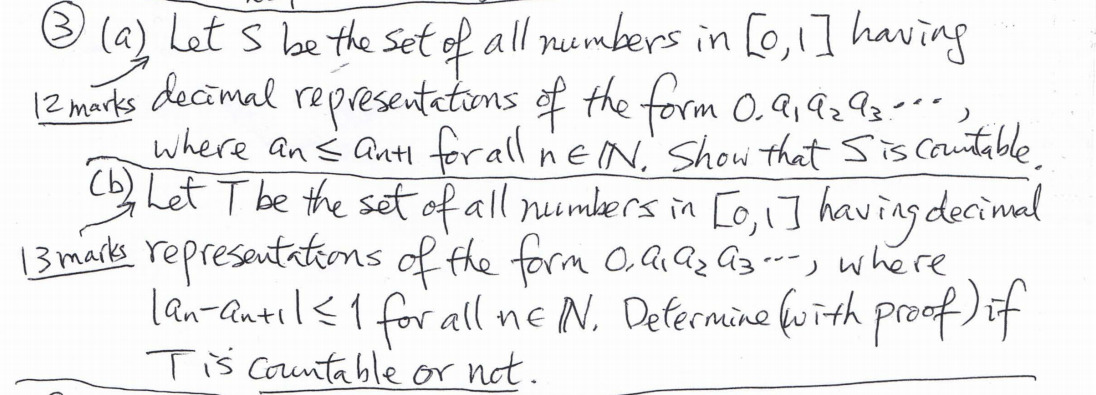 ③ (a) Let S be the set of all numbers in [0,1] having
12 marks decimal representations of the form 0.a₁a₂a₃...,
where aₙ ≤ aₙ₊₁ for all n ∈ ℕ. Show that S is countable.
(b) Let T be the set of all numbers in [0,1] having decimal
13 marks representations of the form 0.a₁a₂a₃..., where
|aₙ-aₙ₊₁| ≤ 1 for all n ∈ ℕ. Determine (with proof) if
T is countable or not.